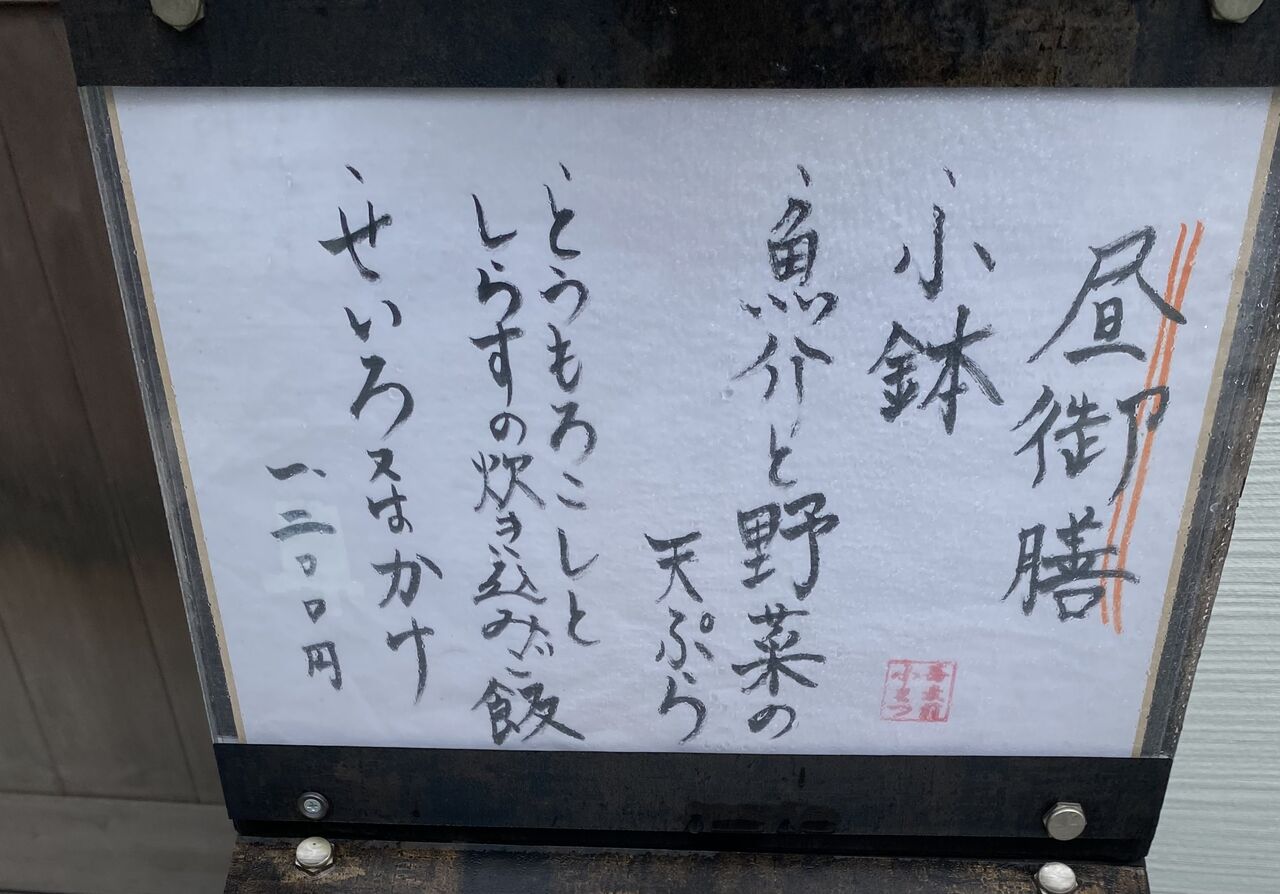 昼御膳
、小鉢
、魚介と野菜の
天ぷら
、とうもろこしと
しらすの炊き込みご飯
、せいろ又はかけ
一、二〇〇円